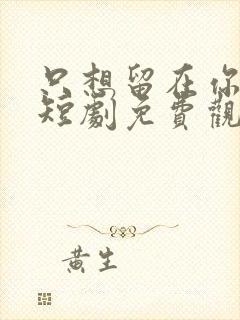 只想留在你
短劇免費觀
黃生